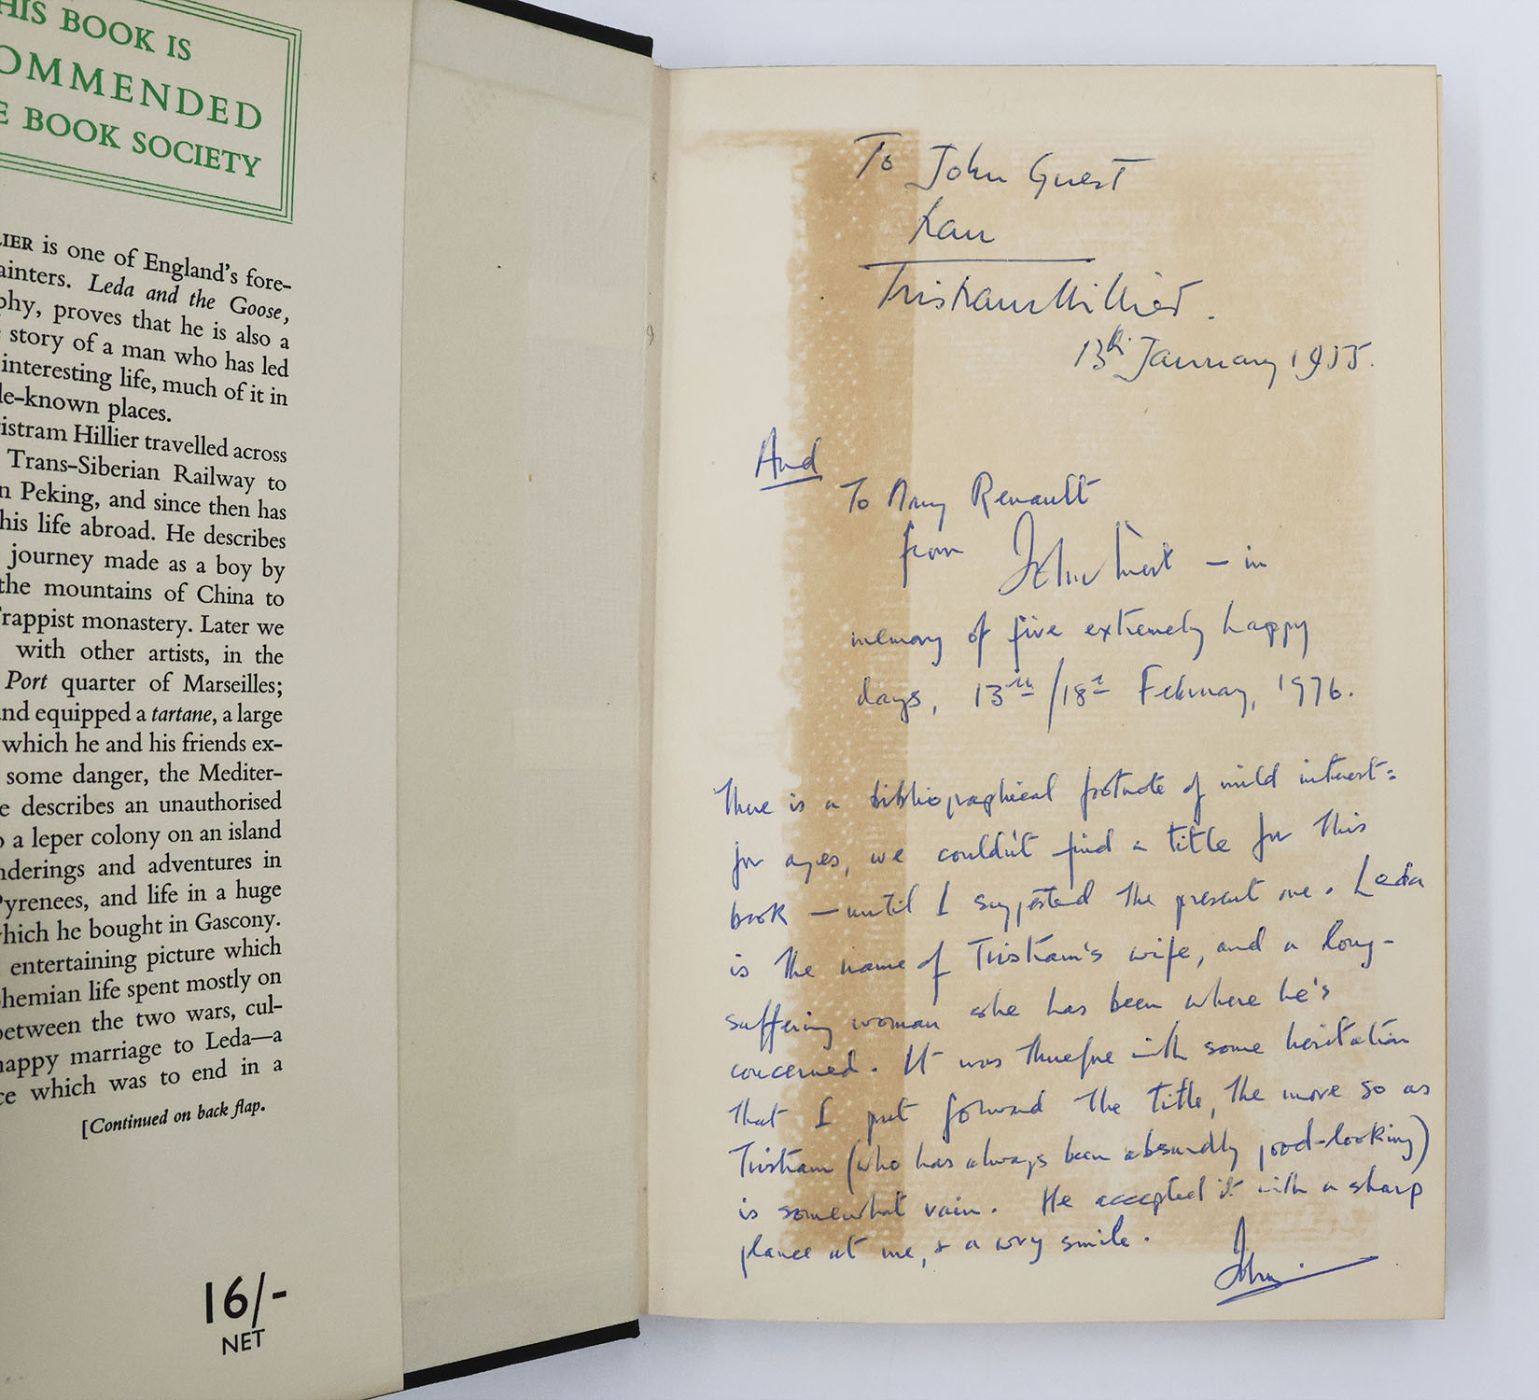 HIS BOOK IS
OMMENDED
E BOOK SOCIETY
LIER is one of England's fore-
ainters. Leda and the Goose,
phy, proves that he is also a
story of a man who has led
interesting life, much of it in
le-known places.
istram Hillier travelled across
Trans-Siberian Railway to
n Peking, and since then has
his life abroad. He describes
journey made as a boy by
the mountains of China to
rappist monastery. Later we
with other artists, in the
Port quarter of Marseilles;
nd equipped a tartane, a large
which he and his friends ex-
some danger, the Mediter-
e describes an unauthorised
o a leper colony on an island
nderings and adventures in
Pyrenees, and life in a huge
which he bought in Gascony.
entertaining picture which
ohemian life spent mostly on
between the two wars, cul-
happy marriage to Leda—a
ce which was to end in a
[Continued on back flap.
16/-
NET
To John Guest
from
Tristram Hillier.
13th January 1955.
And
To Mary Renault
from John Guest — in
memory of five extremely happy
days, 13th/18th February, 1976.
There is a bibliographical footnote of mild interest:
for ages, we couldn't find a title for this
book — until I suggested the present one. Leda
is the name of Tristram's wife, and a long-
suffering woman she has been where he's
concerned. It was therefore with some hesitation
that I put forward the title, the more so as
Tristram (who has always been absurdly good-looking)
is somewhat vain. He accepted it with a sharp
glance at me, & a wry smile.
John.